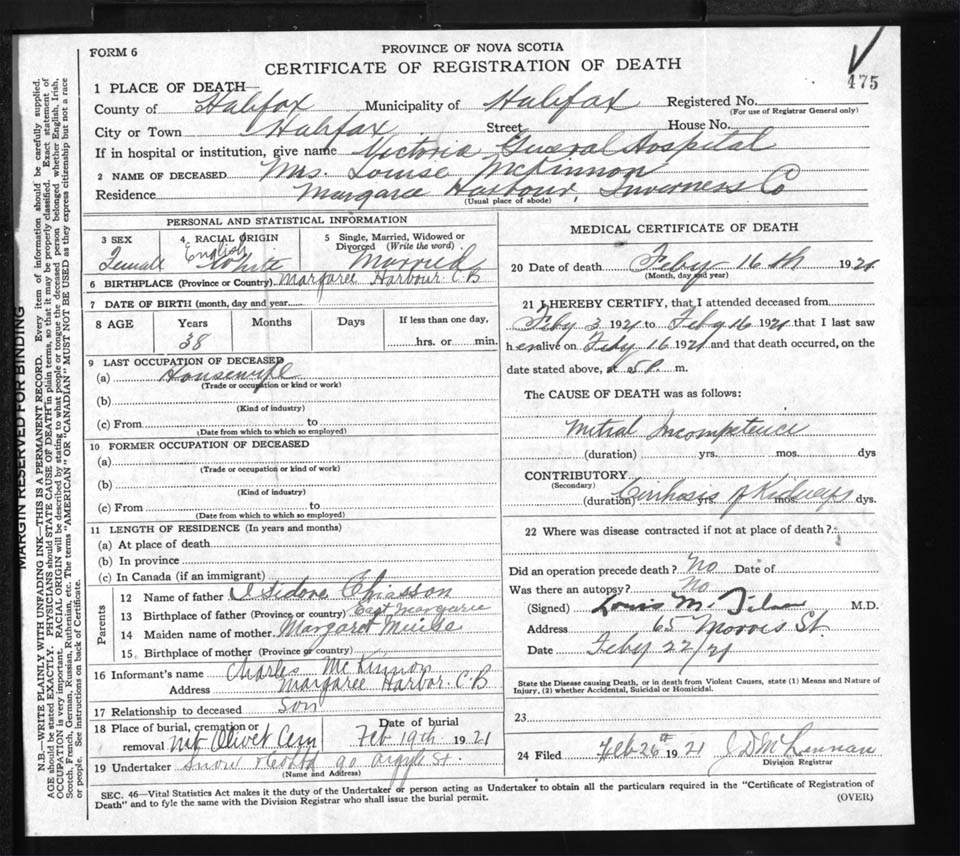 FORM 6
PROVINCE OF NOVA SCOTIA
CERTIFICATE OF REGISTRATION OF DEATH
475
1 PLACE OF DEATH
County of Halifax Municipality of Halifax Registered No.
(For use of Registrar General only)
City or Town Halifax Street House No.
If in hospital or institution, give name Victoria General Hospital
2 NAME OF DECEASED Mrs. Louise McKinnon
Residence Margaree Harbour, Inverness Co
(Usual place of abode)
PERSONAL AND STATISTICAL INFORMATION
3 SEX 4 RACIAL ORIGIN 5 Single, Married, Widowed or Divorced (Write the word)
Female English White Married
6 BIRTHPLACE (Province or Country) Margaree Harbour C.B
7 DATE OF BIRTH (month, day and year)
8 AGE Years Months Days If less than one day,
38 hrs. or min.
9 LAST OCCUPATION OF DECEASED
(a) Housewife
(Trade or occupation or kind or work)
(b)
(Kind of industry)
(c) From to
(Date from which to which so employed)
10 FORMER OCCUPATION OF DECEASED
(a)
(Trade or occupation or kind of work)
(b)
(Kind of industry)
(c) From to
(Date from which to which so employed)
11 LENGTH OF RESIDENCE (In years and months)
(a) At place of death
(b) In province
(c) In Canada (if an immigrant)
Parents
12 Name of father Isidore Chiasson
13 Birthplace of father (Province or country) East Margaree
14 Maiden name of mother Margaret
15 Birthplace of mother (Province or country)
16 Informant's name Charles McKinnon
Address Margaree Harbor C.B
17 Relationship to deceased Son
18 Place of burial, cremation or removal Mt Olivet Cem
Date of burial Feb 19th 1921
19 Undertaker Snow 90 Argyle St.
(Name and Address)
MEDICAL CERTIFICATE OF DEATH
20 Date of death Feby 16th 1921
(Month, day and year)
21 I HEREBY CERTIFY, that I attended deceased from
Feby 3 1921 to Feby 16 1921 that I last saw
her alive on Feby 16 1921 and that death occurred, on the
date stated above, at 5 P. m.
The CAUSE OF DEATH was as follows:
Mitral Incompetence
(duration) yrs. mos. dys
CONTRIBUTORY
(Secondary)
Cirrhosis of Kidneys
(duration) yrs. mos. dys.
22 Where was disease contracted if not at place of death?
Did an operation precede death? No Date of
Was there an autopsy? No
(Signed) Louis M. M.D.
Address 65 Morris St.
Date Feby 22/21
State the Disease causing Death, or in death from Violent Causes, state (1) Means and Nature of
Injury, (2) whether Accidental, Suicidal or Homicidal.
23
24 Filed Feb 26th 1921 J D McLennan
Division Registrar
SEC. 46—Vital Statistics Act makes it the duty of the Undertaker or person acting as Undertaker to obtain all the particulars required in the "Certificate of Registration of
Death" and to fyle the same with the Division Registrar who shall issue the burial permit.
(OVER)
MARGIN RESERVED FOR BINDING
N.B.—WRITE PLAINLY WITH UNFADING INK—THIS IS A PERMANENT RECORD. Every item of information should be carefully supplied.
AGE should be stated EXACTLY. PHYSICIANS should STATE CAUSE OF DEATH in plain terms, so that it may be properly classified. Exact statement of
OCCUPATION is very important. RACIAL ORIGIN will be described by stating to what people or tongue the deceased person belonged whether English, Irish,
Scotch, French, German, Russian, Ruthenian, etc. The terms "AMERICAN" OR "CANADIAN" MUST NOT BE USED as they express citizenship but not a race
or people. See instructions on back of Certificate.